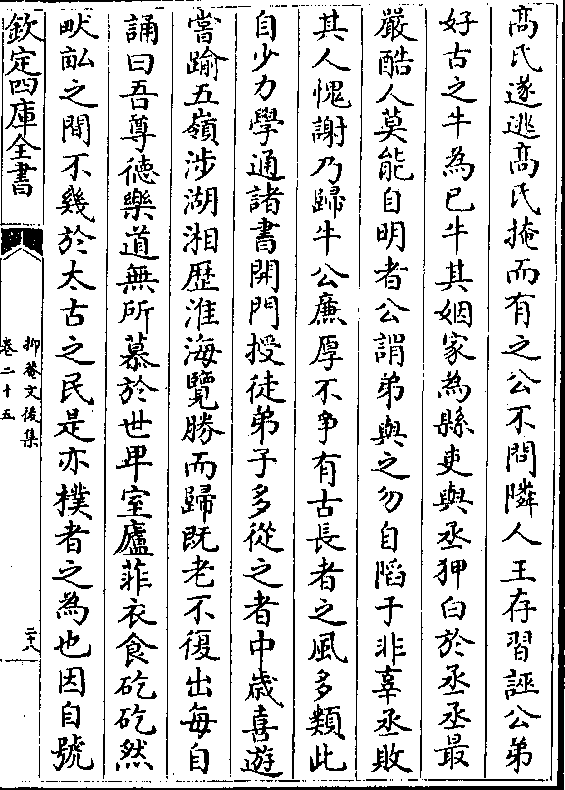 高氏遂逃高氏掩而有之公不問隣人王存習誣公弟
好古之牛為已牛其姻家為縣吏與丞狎白於丞丞最
嚴酷人莫能自明者公誚弟與之勿自陷于非辜丞敗
其人愧謝乃歸牛公廉厚不爭有古長者之風多類此
自少力學通諸書開門授徒弟子多從之者中歲喜遊
嘗踰五嶺涉湖湘歴淮海覽勝而歸既老不復出每自
誦曰吾尊德樂道無所慕於世卑室廬菲衣食矻矻然
畎畝之間不幾於太古之民是亦樸者之為也因自號
欽定四庫全書
抑菴文後集
卷二十五
二十八